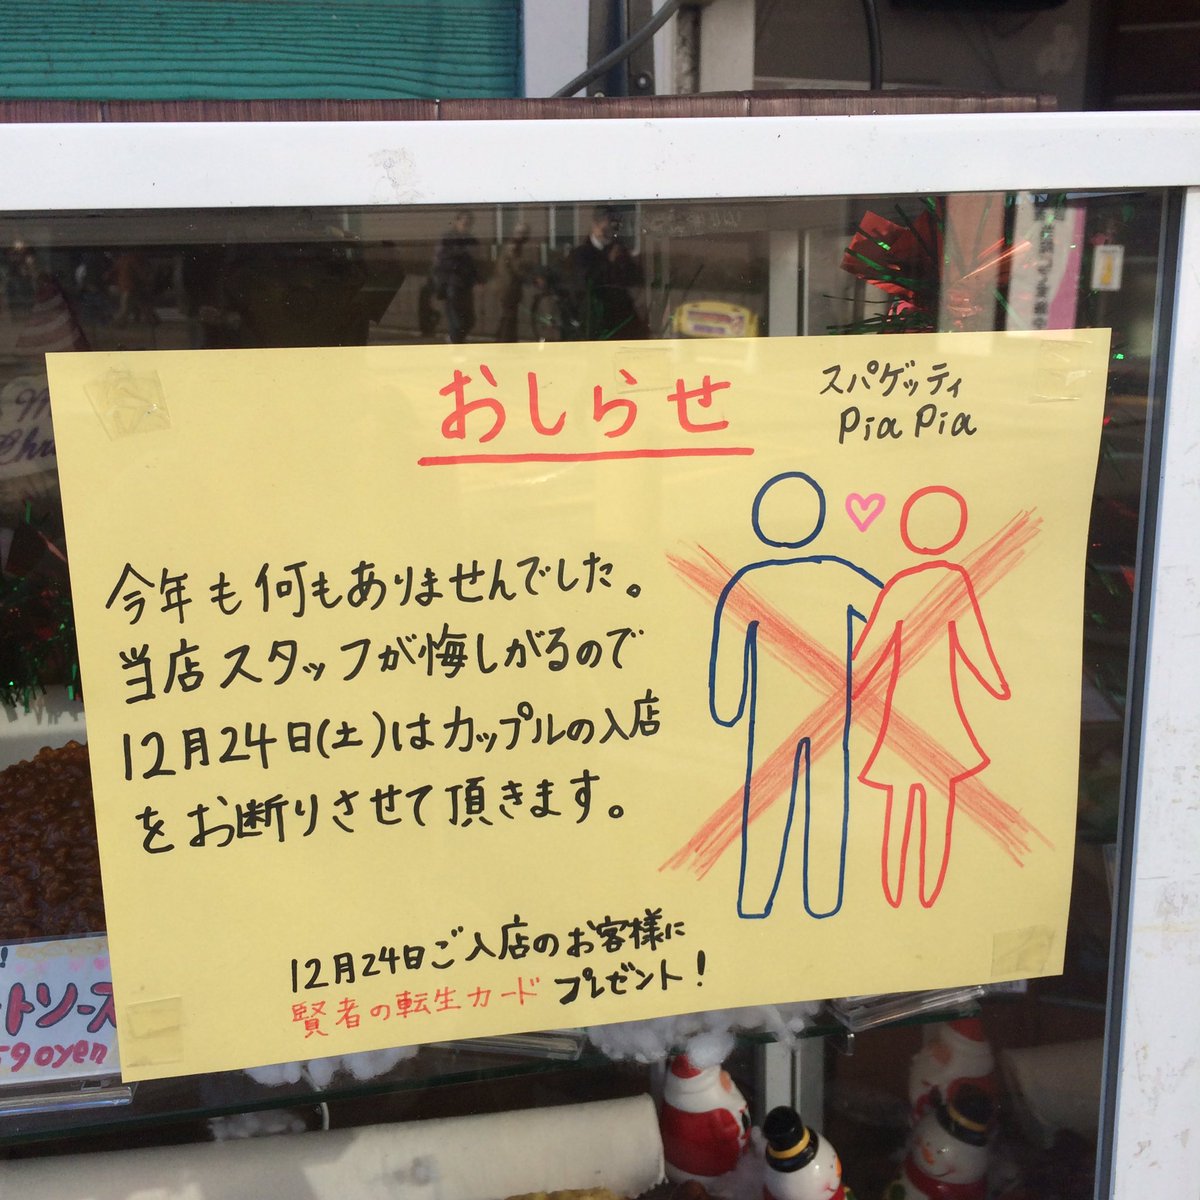 おしらせ
スパゲッティ
Pia Pia
今年も何もありませんでした。
当店スタッフが悔しがるので
12月24日(土)はカップルの入店
をお断りさせて頂きます。
12月24日ご入店のお客様に
賢者の転生カード プレゼント!
トソース
90yen